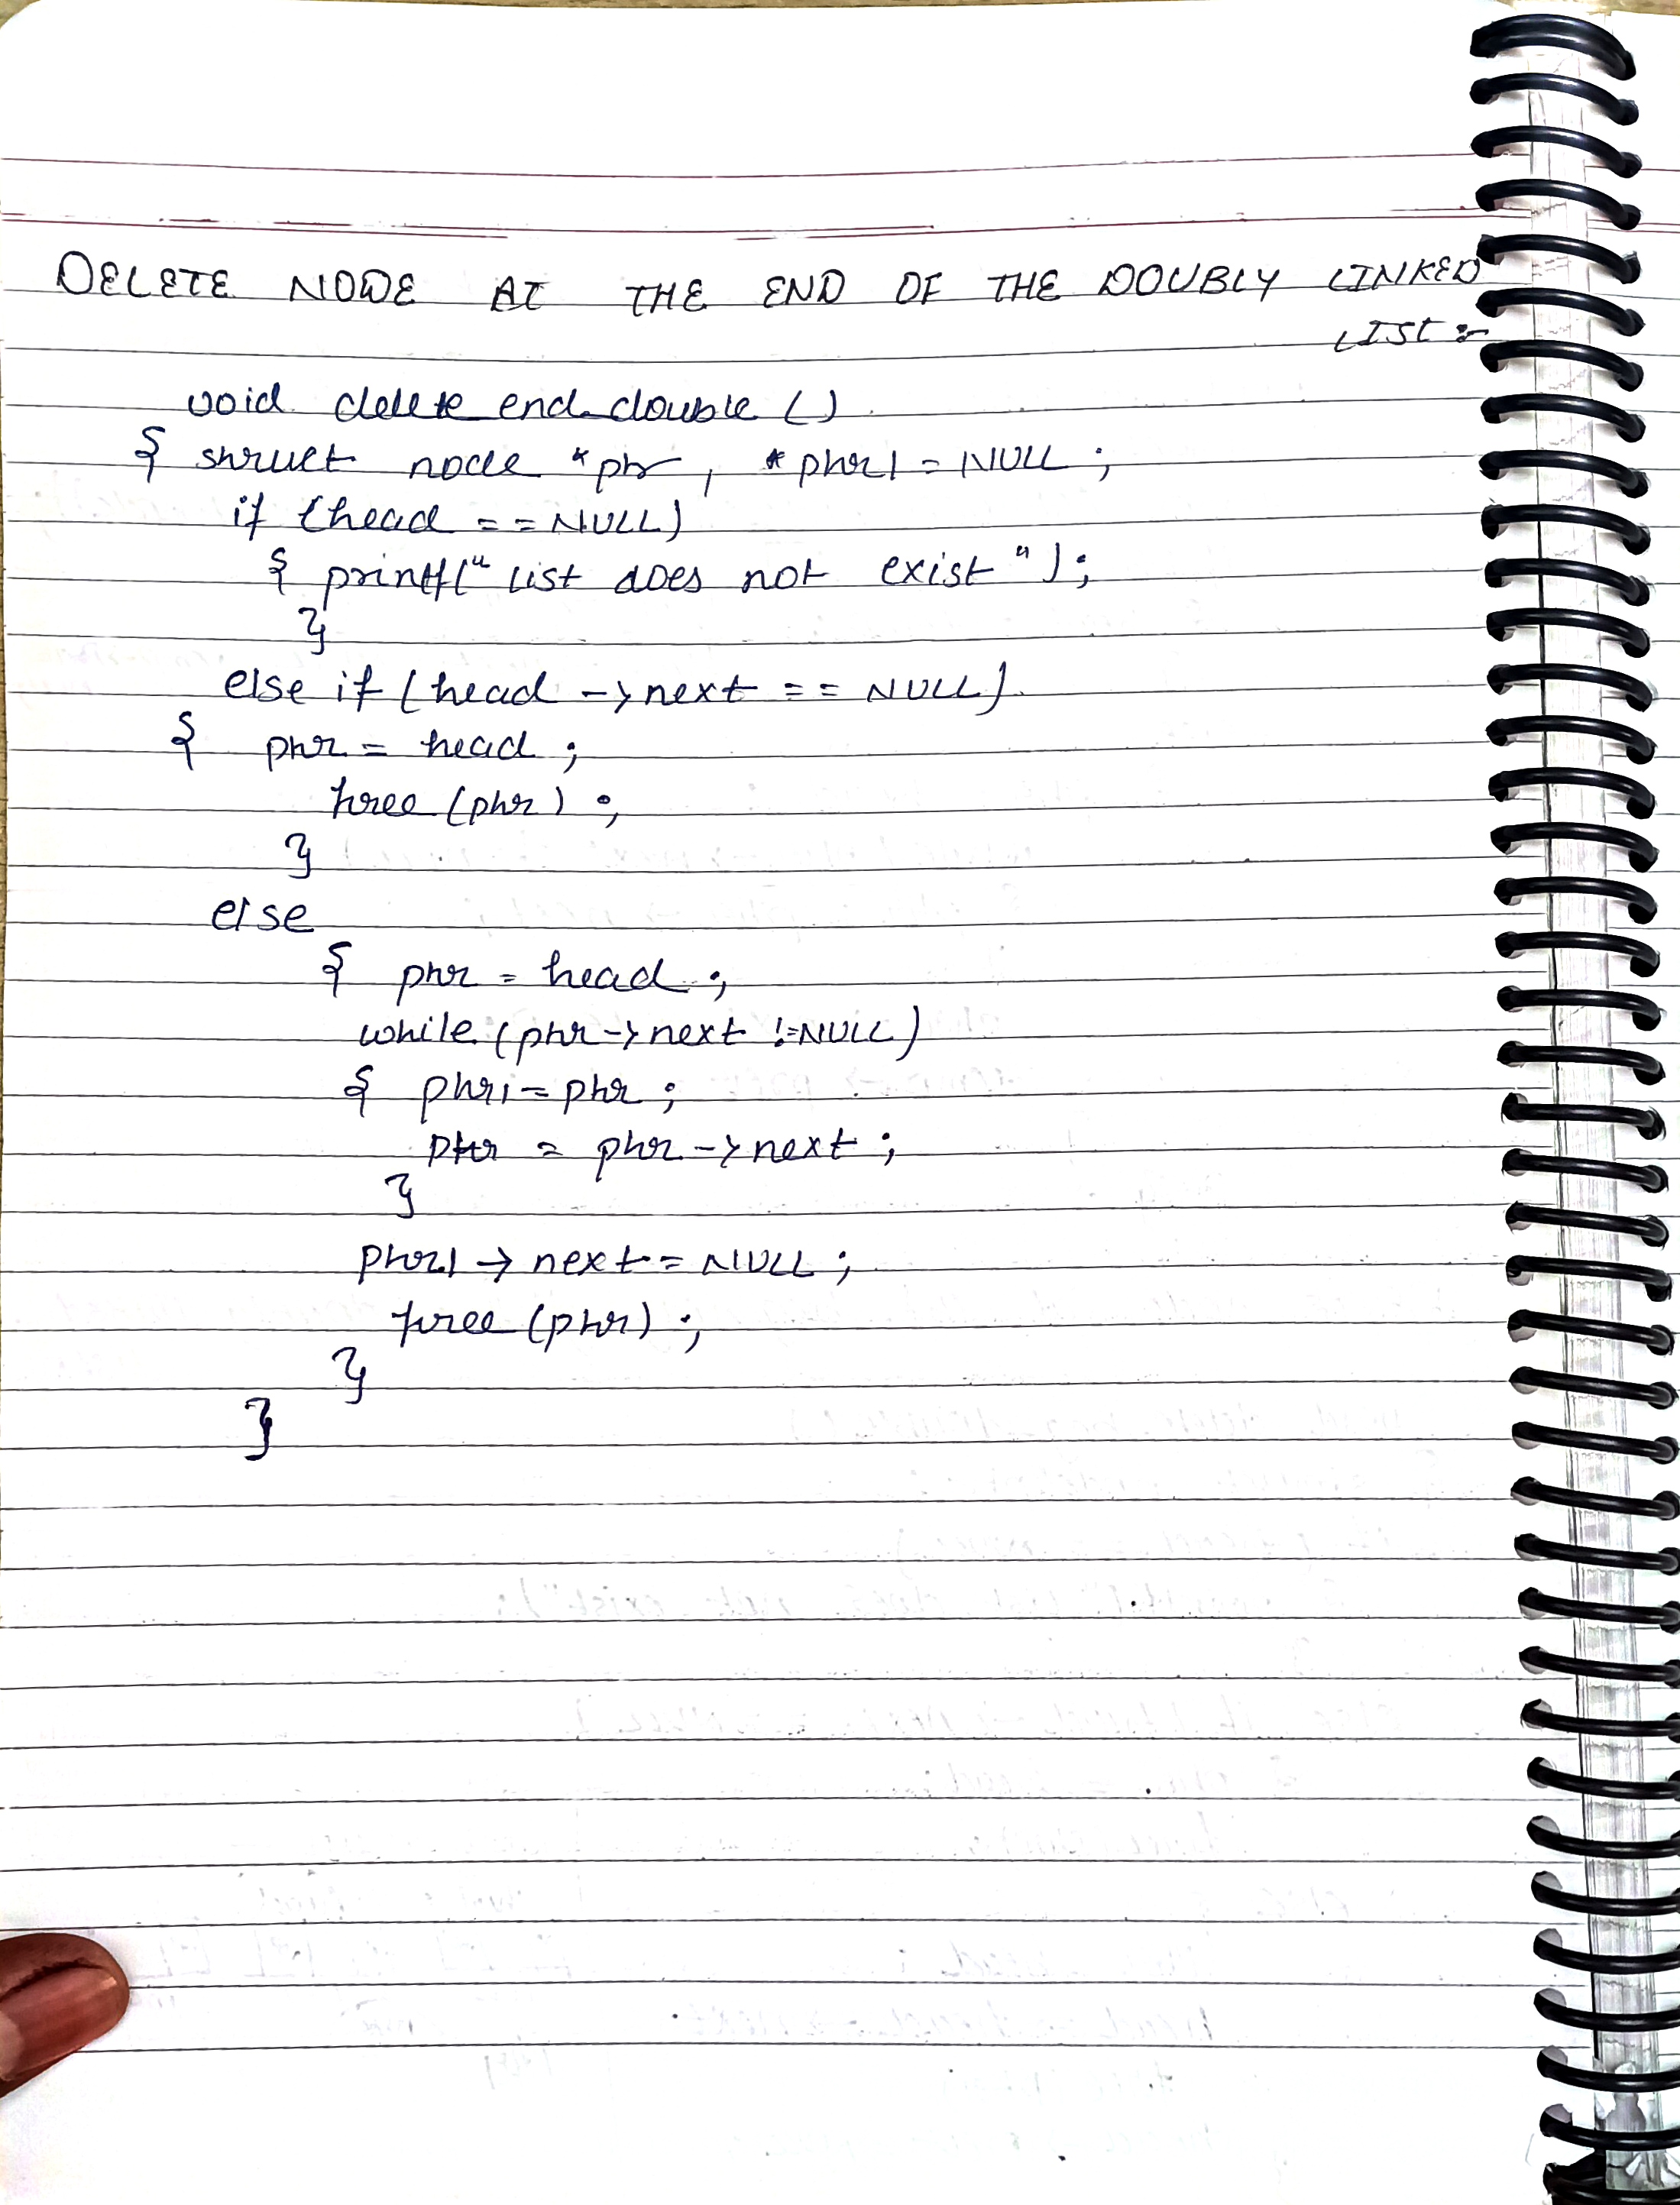 DELETE NODE AT THE END OF THE DOUBLY LINKED
LIST :-
void delete_end_double ()
{ struct node *ptr, *ptr1 = NULL ;
if (head == NULL)
{ printf(" list does not exist ");
}
else if (head -> next == NULL)
{ ptr = head ;
free (ptr) ;
}
else
{ ptr = head ;
while (ptr -> next != NULL)
{ ptr1 = ptr ;
ptr = ptr -> next ;
}
ptr1 -> next = NULL ;
free (ptr) ;
}
}